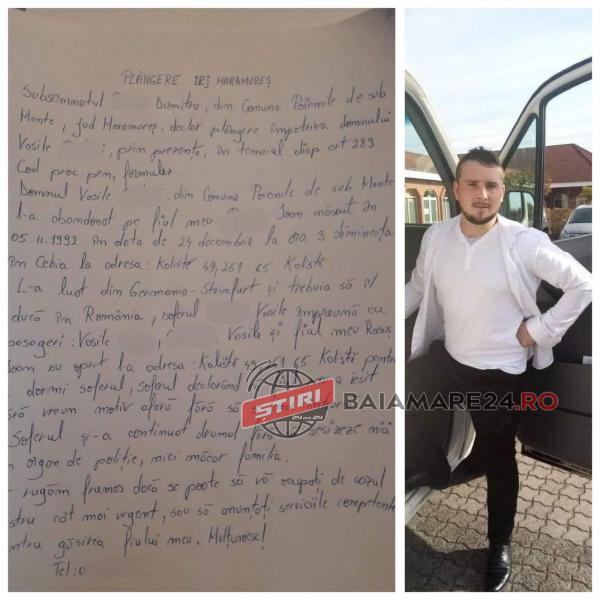 PLÂNGERE IPJ MARAMUREȘ
Subsemnatul Dumitru, din Comuna Poienile de sub
Munte, jud Maramureș, declar plângere împotriva domnului
Vasile, prin prezenta, în temeiul disp. art 289
Cod proc. pen, formulez.
Domnul Vasile, din Comuna Poienile de sub Munte
l-a abandonat pe fiul meu Ioan născut în
05.11.1992 în data de 24 decembrie la ora 3 dimineața
în Cehia la adresa: Koliste 49,251 65 Koliste.
L-a luat din Germania - Steinfurt și trebuia să îl
ducă în România, șoferul Vasile împreună cu
pasageri: Vasile, Vasile și fiul meu
Ioan au oprit l-a adresa: Koliště 49, 251 65 Koliště pentru
dormi șoferul, șoferul declarând a ieșit
ără vreun motiv afară fără să
Șoferul și-a continuat drumul fără sesizeze nici
n organ de poliție, nici măcar familia.
rugăm frumos dacă se poate să vă ocupați de cazul
stru cât mai urgent, sau să anunțați serviciile competente
ntru găsirea fiului meu. Mulțumesc!
Tel:0
ȘTIRI
24 din 24
BAIAMARE24.RO